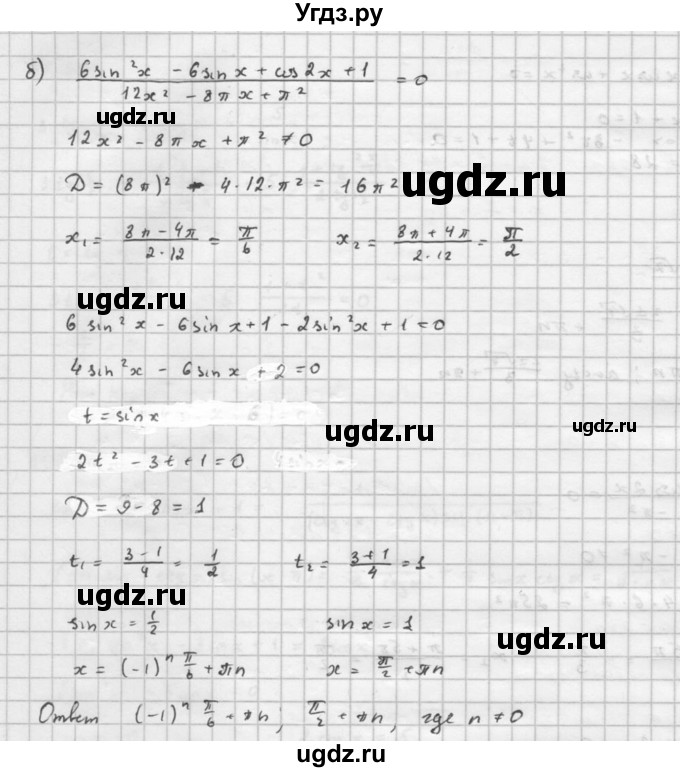 Угдз.ру
б) (6 sin²x - 6 sin x + cos 2x + 1) / (12x² - 8πx + π²) = 0
ugdz.ru
12x² - 8πx + π² ≠ 0
D = (8π)² - 4·12·π² = 16π²
ugdz.ru
x₁ = (8π - 4π) / (2·12) = π/6    x₂ = (8π + 4π) / (2·12) = π/2
ugdz.ru
6 sin²x - 6 sin x + 1 - 2 sin²x + 1 = 0
4 sin²x - 6 sin x + 2 = 0
t = sin x
ugdz.ru ugdz.ru
2t² - 3t + 1 = 0
D = 9 - 8 = 1
t₁ = (3 - 1)/4 = 1/2    t₂ = (3 + 1)/4 = 1
ugdz.ru
sin x = 1/2    sin x = 1
ugdz.ru
x = (-1)ⁿ π/6 + πn    x = π/2 + πn
Ответ (-1)ⁿ π/6 + πn; π/2 + πn, где n ≠ 0
ugdz.ru